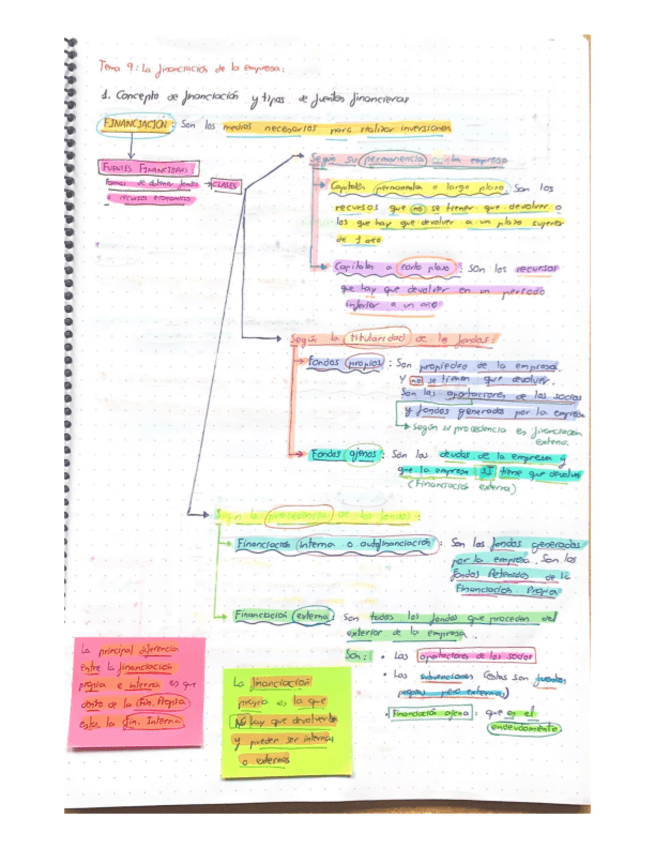 Tema 9: La financiación de la empresa:
1. Concepto de financiación y tipos de fuentes financieras
FINANCIACIÓN: Son los medios necesarios para realizar inversiones
FUENTES FINANCIERAS
formas de obtener fondos → CLASES
o recursos económicos
Según su permanencia en la empresa
Capitales permanentes o largo plazo. Son los
recursos que no se tienen que devolver o
los que hay que devolver a un plazo superior
de 1 año
Capitales a corto plazo: Son los recursos
que hay que devolver en un periodo
inferior a un año
Según la titularidad de los fondos:
Fondos propios: Son propiedad de la empresa
Y no se tienen que devolver.
Son las aportaciones de los socios
y fondos generados por la empresa
Según su procedencia es financiación
externa.
Fondos ajenos: Son las deudas de la empresa y
que la empresa SI tiene que devolver
(Financiación externa)
Según la procedencia de los fondos:
Financiación interna o autofinanciación: Son los fondos generados
por la empresa. Son los
fondos Retenidos de la
Financiación Propia
Financiación externa: Son todos los fondos que proceden del
exterior de la empresa.
Son: • Las aportaciones de los socios
• Las subvenciones (estas son fuentes
propias pero externas)
• Financiación ajena: que es el
endeudamiento.
La principal diferencia
entre la financiación
propia e interna es que
dentro de la Fin. Propia
esta la Fin. Interna
La financiación
propia es la que
NO hay que devolverla
y pueden ser internas
o externas